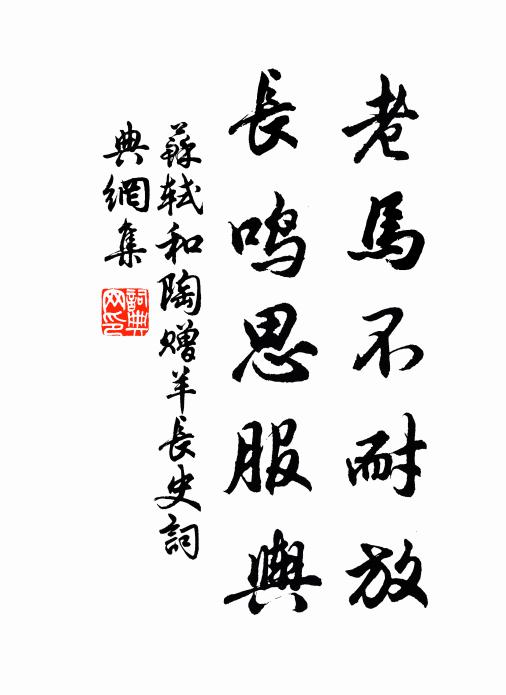 老馬不耐放
長鳴思服輿
蘇軾和陶贈羊長史詞
典網集
詞典
网印